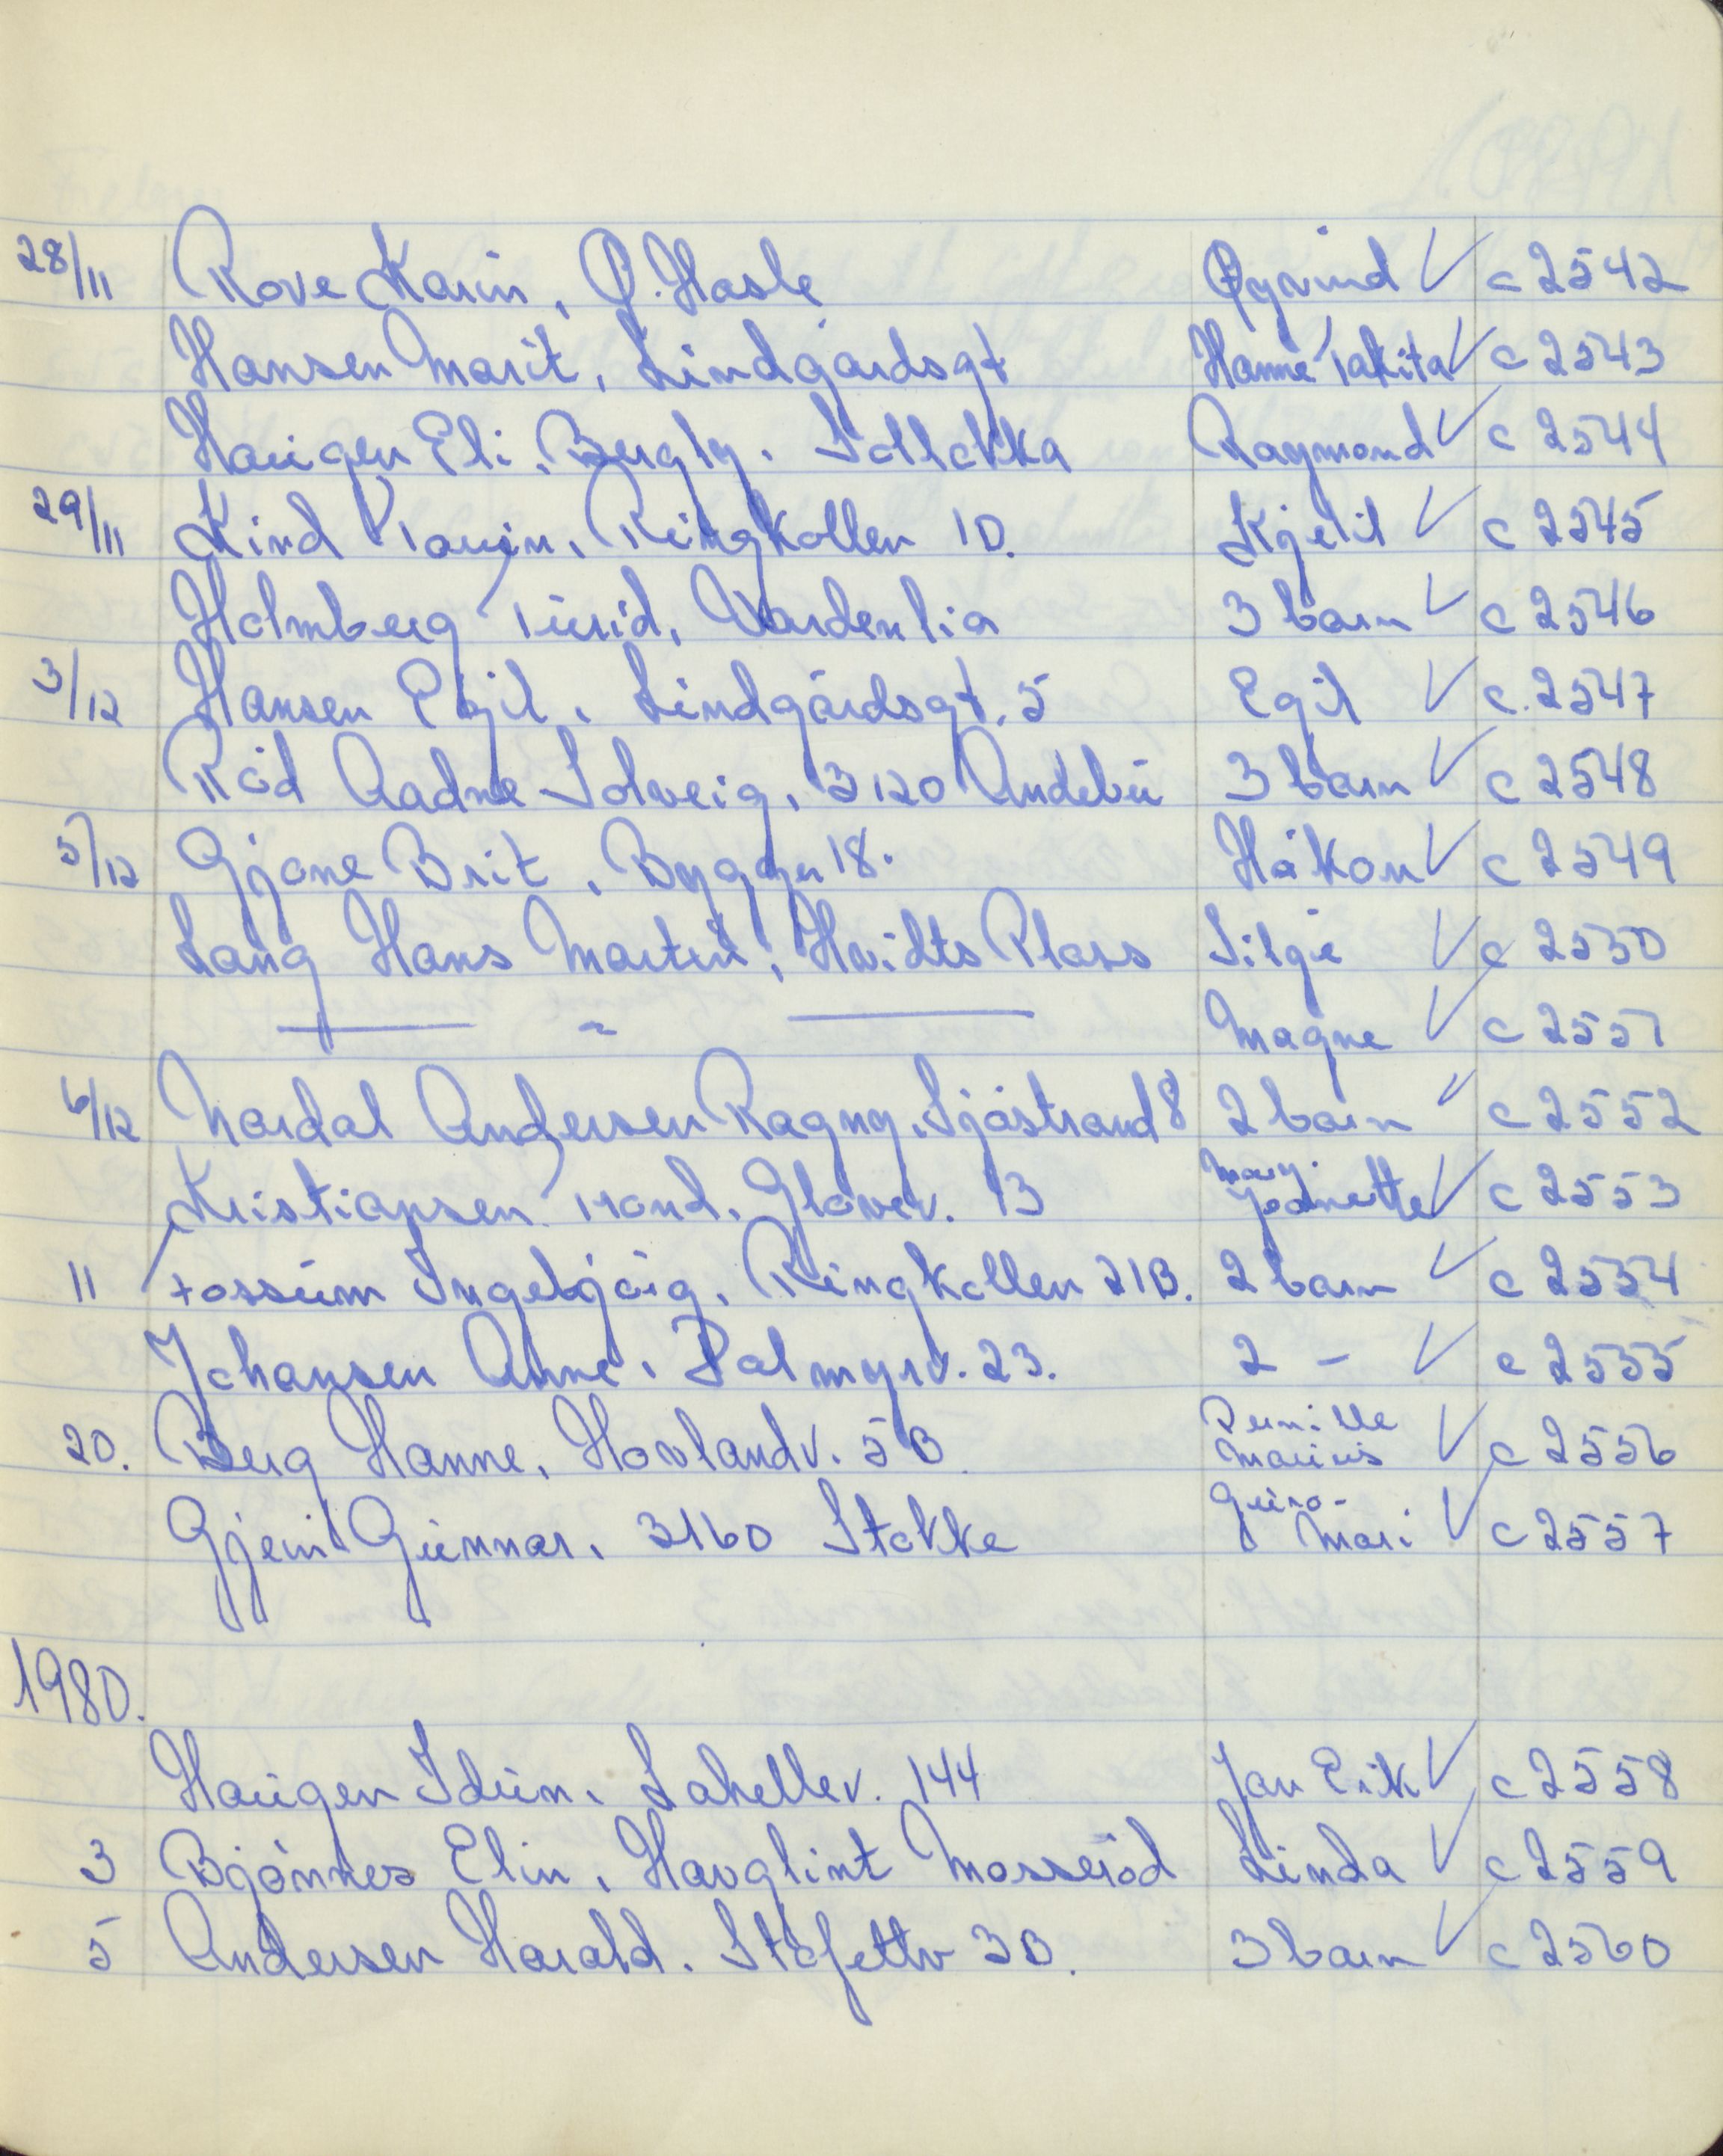 28/11 Rove Karin, Ø. Hasle Øyvind ✓ c 2542
Hansen Marit, Lindgaardsgt Hanne Takita ✓ c 2543
Haugen Eli, Bergly. Solløkka Raymond ✓ c 2544
29/11 Kind Torunn, Ringkollen 10. Kjetil ✓ c 2545
Holmberg Turid, Vardenlia 3 barn ✓ c 2546
3/12 Hansen Egil, Lindgårdsgt. 5 Egil ✓ c 2547
Röd Aadne Solveig, 3120 Andebu 3 barn ✓ c 2548
5/12 Gjone Brit, Byggn 18. Håkon ✓ c 2549
Lang Hans Martin, Hvidts Plass Silje ✓ c 2550
— " — Magne ✓ c 2551
6/12 Nordal Andersen Ragny, Sjöstrand 8 2 barn ✓ c 2552
Kristiansen Trond, Glaverv. 13 Mary Jeanette ✓ c 2553
11 Fossum Ingebjörg, Ringkollen 21B. 2 barn ✓ c 2554
Johansen Anne, Palmyrv. 23. 2 – ✓ c 2555
20. Berg Hanne, Hovlandv. 5B. Pernille Marius ✓ c 2556
Gjein Gunnar, 3160 Stokke Guro-Mari ✓ c 2557
1980.
Haugen Idun, Lahellev. 144 Jan Erik ✓ c 2558
3 Bjönnes Elin, Havglimt Mosseröd Linda ✓ c 2559
5 Andersen Harald. Stafettv 3B. 3 barn ✓ c 2560